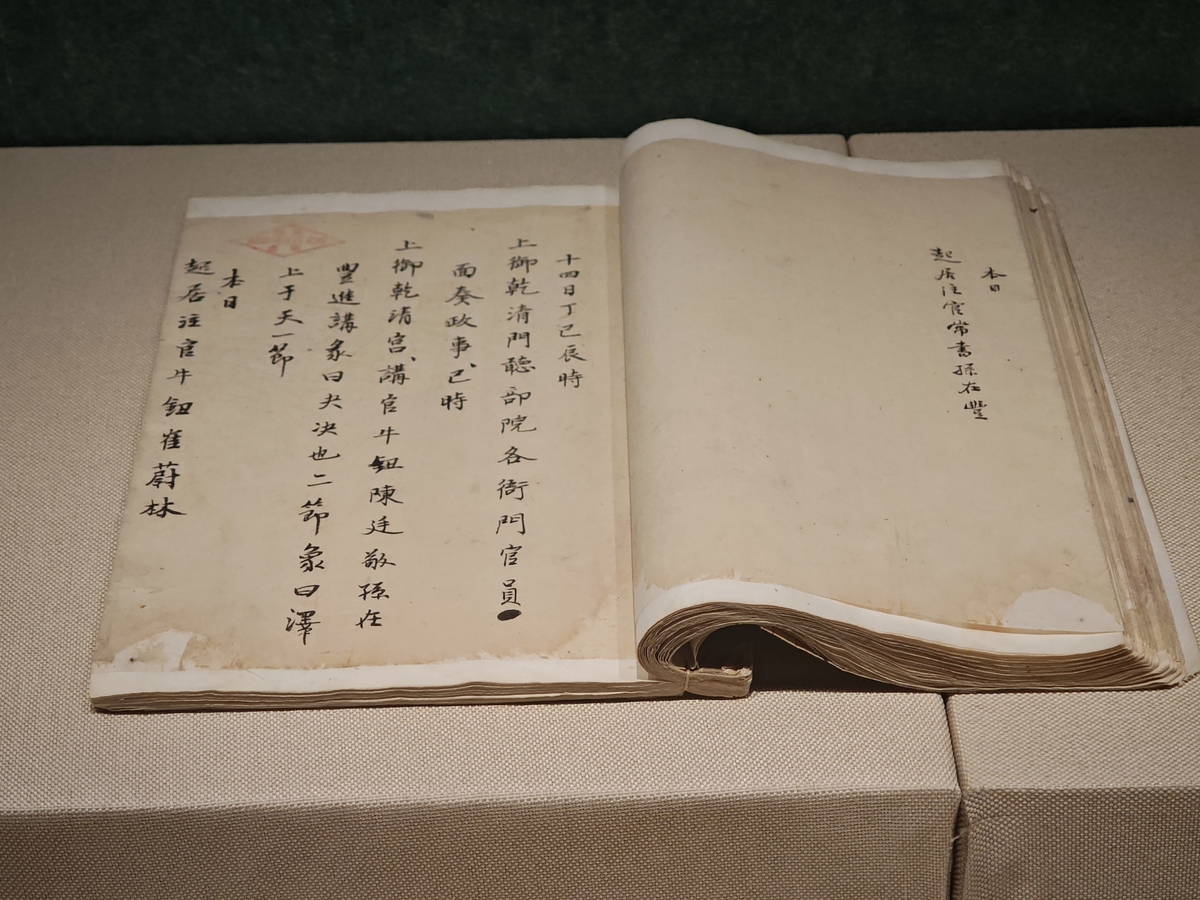 本日
起居注官常書孫在豐
十四日丁巳辰時
上御乾清門聽部院各衙門官員
面奏政事巳時
上御乾清宮講官牛鈕陳廷敬孫在
豐進講彖曰夬決也二節象曰澤
上于天一節
本日
起居注官牛鈕崔蔚林